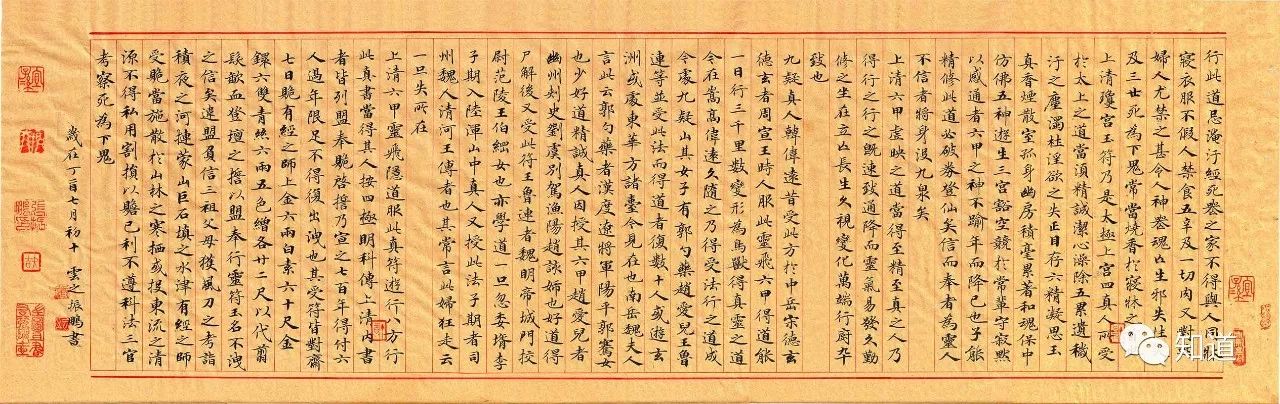 行此道忌淹汙經死喪之家不得與人同牀
寢衣服不假人禁食五辛及一切肉又對
婦人尤禁之甚令人神喪魂亡生邪失性
及三世死為下鬼常當燒香於寢牀之
上清瓊宮玉符乃是太極上宮四真人所受
於太上之道當須精誠潔心澡除五累遺穢
汙之塵濁杜淫欲之失正目存六精凝思玉
真香煙散室孤身幽房積毫累著和魂保中
仿佛五神遊生三宮豁空競於常輩守寂默
以感通者六甲之神不踰年而降已也子能
精修此道必破券登仙矣信而奉者為靈人
不信者將身沒九泉矣
上清六甲虛映之道當得至精至真之人乃
得行之行之既速致通降而靈氣易發久勤
修之坐在立亡長生久視變化萬端行廚卒
致也
九疑真人韓偉遠昔受此方於中岳宋德玄
德玄者周宣王時人服此靈飛六甲得道能
一日行三千里數變形為鳥獸得真靈之道
今在嵩高偉遠久隨之乃得受法行之道成
今處九疑山其女子有郭勺藥趙愛兒王魯
連等並受此法而得道者復數十人或遊玄
洲或處東華方諸臺今見在也南岳魏夫人
言此云郭勺藥者漢度遼將軍陽平郭騫女
也少好道精誠真人因授其六甲趙愛兒者
幽州刺史劉虞別駕漁陽趙該姊也好道得
尸解後又受此符王魯連者魏明帝城門校
尉范陵王伯綱女也亦學道一旦忽委壻李
子期入陸渾山中真人又授此法子期者司
州魏人清河王傳者也其常言此婦狂走云
一旦失所在
上清六甲靈飛隱道服此真符遊行八方行
此真書當得其人按四極明科傳上清內書
者皆列盟奉跪啓誓乃宣之七百年得付六
人過年限足不得復出洩也其受符皆對齋
七日賝有經之師上金六兩白素六十尺金
鐶六雙青絲六兩五色繒各廿二尺以代翦
髮歃血登壇之誓以盟奉行靈符玉名不洩
之信矣違盟負信三祖父母獲風刀之考詣
積夜之河搥蒙山巨石填之水津有經之師
受賝當施散於山林之寒栖或投東流之清
源不得私用割損以贍己利不遵科法三官
考察死為下鬼
歲在丁酉七月初十 雲之振鵬書
知道